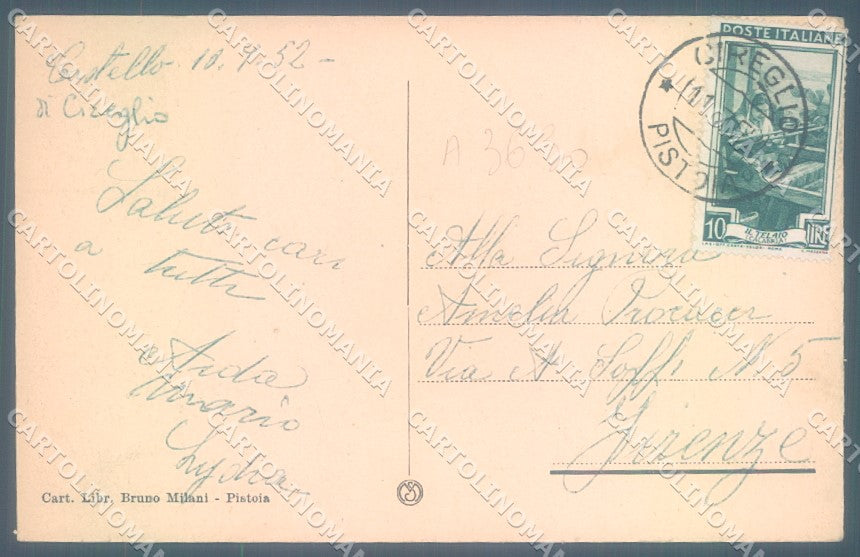 Castello 10.7.52 -
di Cireglio
Saluti cari
a tutti
Aida
Mario
Lydia
Cart. Libr. Bruno Milani - Pistoia
A 36
POSTE ITALIANE
CIREGLIO
PISTOIA
10 LIRE
IL TELAIO
CALABRIA
Alla Signora
Amelia
Via A. Soffi N. 5
Firenze
CARTOLINOMANIA